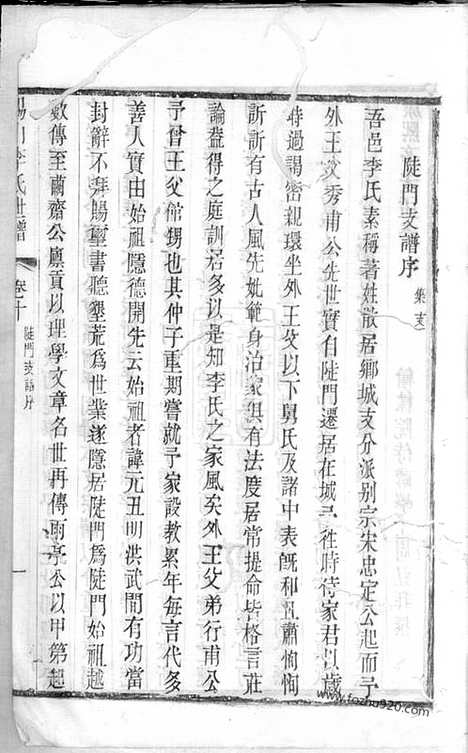 陡門支譜序
集支
吾邑李氏素稱著姓散居鄉城支分派別宗宋忠定公起而予
外王父秀甫公先世實自陡門遷居在城予往時侍家君以歲
時過謁密親環坐外王父以下舅氏及諸中表既和且肅恂恂
訢訢有古人風先妣範身治家俱有法度居常提命皆格言莊
論蓋得之庭訓居多以是知李氏之家風矣外王父弟行甫公
予曾王父館甥也其仲子重期嘗就予家設教累年每言代多
善人實由始祖隱德開先云始祖者諱元丑明洪武間有功當
封辭不拜賜璽書聽墾荒爲世業遂隱居陡門爲陡門始祖越
數傳至繭齋公廩貢以理學文章名世再傳雨亭公以甲第起
李氏世譜
卷十
陡門支譜序
一
www.fozhu920.com